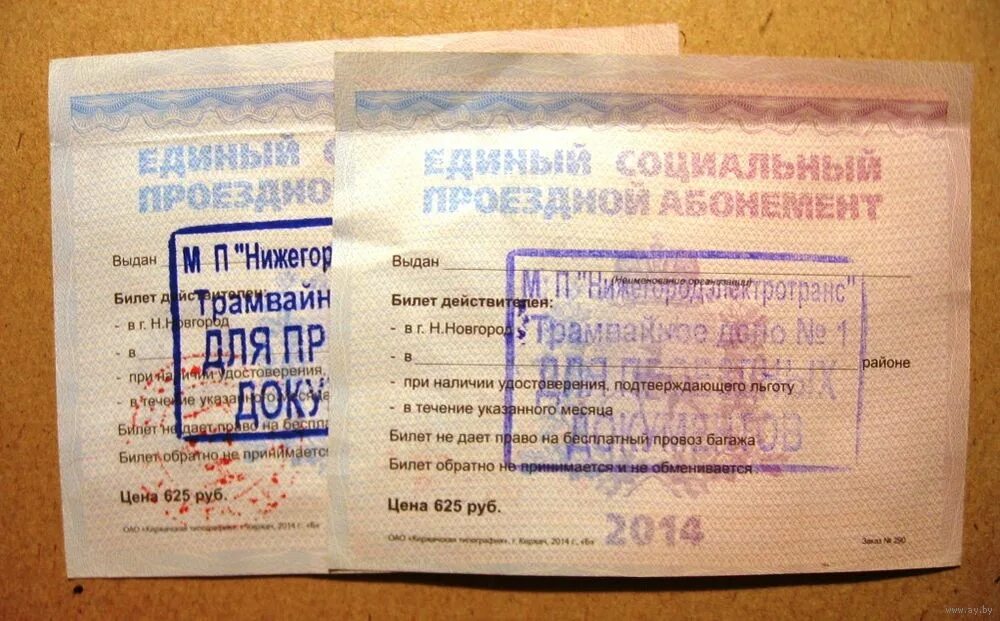 ЕДИНЫЙ С
ПРОЕЗДНО
Выдан
Билет действителен:
- в г. Н.Новгород
- в
- при наличии удостоверения,
- в течение указанного месяца
Билет не дает право на беспла
Билет обратно не принимаетс
Цена 625 руб.
ОАО «Киржачская типография», г. Киржач, 2014 г., «Б»
М П "Нижегор
Трамвайн
ДЛЯ ПР
ДОКУ
ЕДИНЫЙ СОЦИАЛЬНЫЙ
ПРОЕЗДНОЙ АБОНЕМЕНТ
Выдан
(Наименование организации)
Билет действителен:
- в г. Н.Новгород
- в районе
- при наличии удостоверения, подтверждающего льготу
- в течение указанного месяца
Билет не дает право на бесплатный провоз багажа
Билет обратно не принимается и не обменивается
Цена 625 руб.
2014
ОАО «Киржачская типография», г. Киржач, 2014 г., «Б»
Заказ № 290
М П "Нижегородэлектротранс"
Трамвайное депо № 1
ДЛЯ
ДОКУМЕНТОВ
www.ay.by